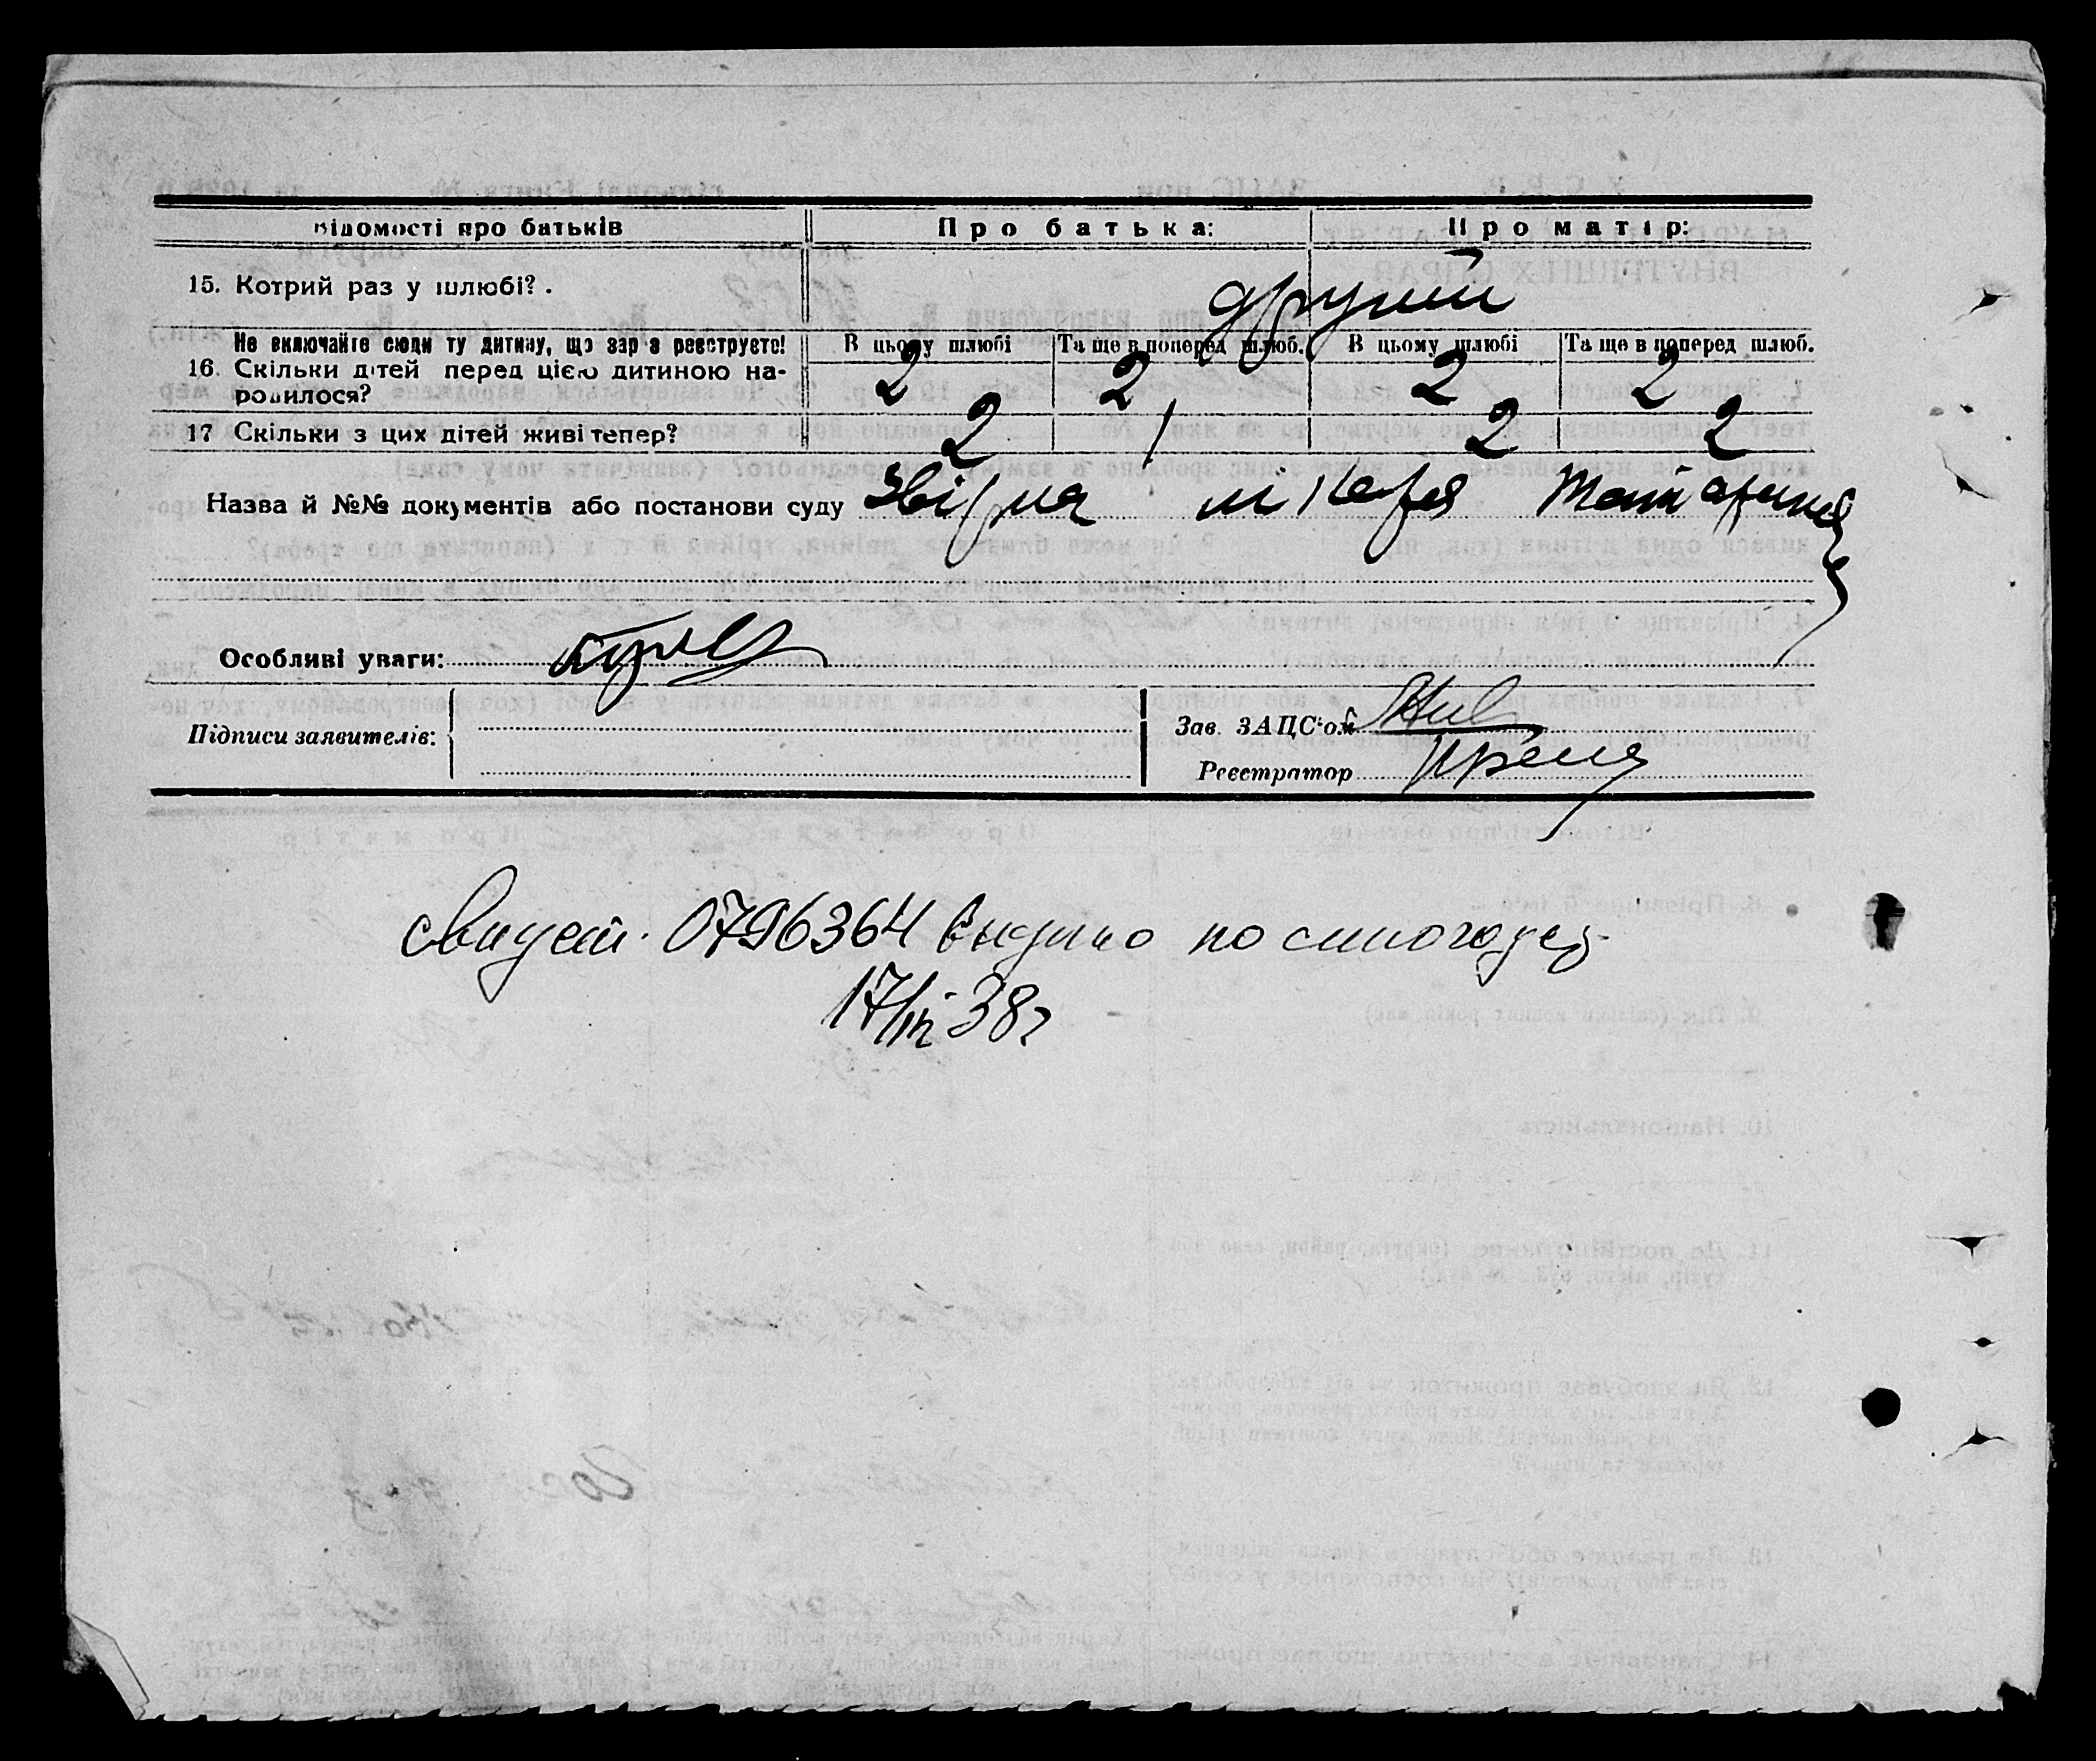 Відомості про батьків Про батька: Про матір:
15. Котрий раз у шлюбі? . другий
Не включайте сюди ту дитину, що зараз реєструєте! В цьому шлюбі Та ще в поперед шлюб. В цьому шлюбі Та ще в поперед шлюб.
16. Скільки дітей перед цією дитиною на- 2 2 2 2
родилося?
17 Скільки з цих дітей живі тепер? 2 1 2 2
Назва й №№ документів або постанови суду лікаря
Особливі уваги:
Підписи заявителів: Зав. ЗАЦС'ом
Реєстратор
свидет. 0796364 выдано
17/IX 38 г